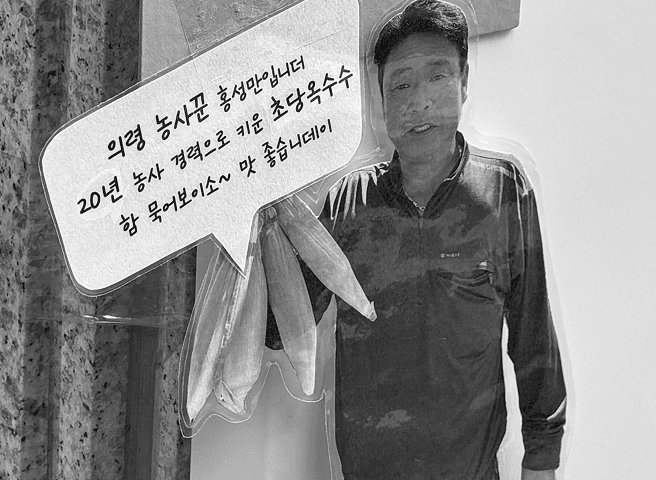 의령 농사꾼 홍성만입니더
20년 농사 경력으로 키운 초당옥수수
함 묵어보이소~ 맛 좋습니데이